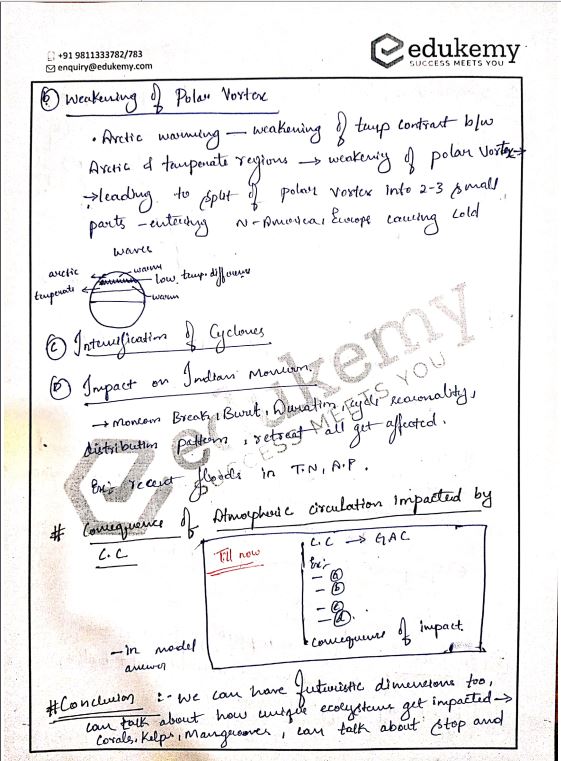 +91 9811333782/783
enquiry@edukemy.com
edukemy
SUCCESS MEETS YOU
(b) Weakening of Polar Vortex
• Arctic warming — weakening of temp contrast b/w
Arctic & temperate regions → weakening of polar vortex →
→ leading to split of polar vortex into 2-3 small
parts - entering N-America, Europe causing cold
waves
arctic
warm
low temp. difference
temperate
warm
(c) Intensification of Cyclones
(D) Impact on Indian Monsoon.
→ Monsoon Break, Burst, Duration, cycle seasonality,
distribution pattern, retreat all get affected.
Ex:- recent floods in T.N, A.P.
# Consequence of Atmospheric circulation impacted by
C.C
Till now
C.C → GAC
Ex:-
- (a)
- (b)
- (c)
- (d).
Consequence of impact.
- in model
answer
# Conclusion :- we can have futuristic dimensions too,
can talk about how unique ecosystems get impacted →
Corals, Kelps, Mangroves, can talk about stop and
edukemy
SUCCESS MEETS YOU